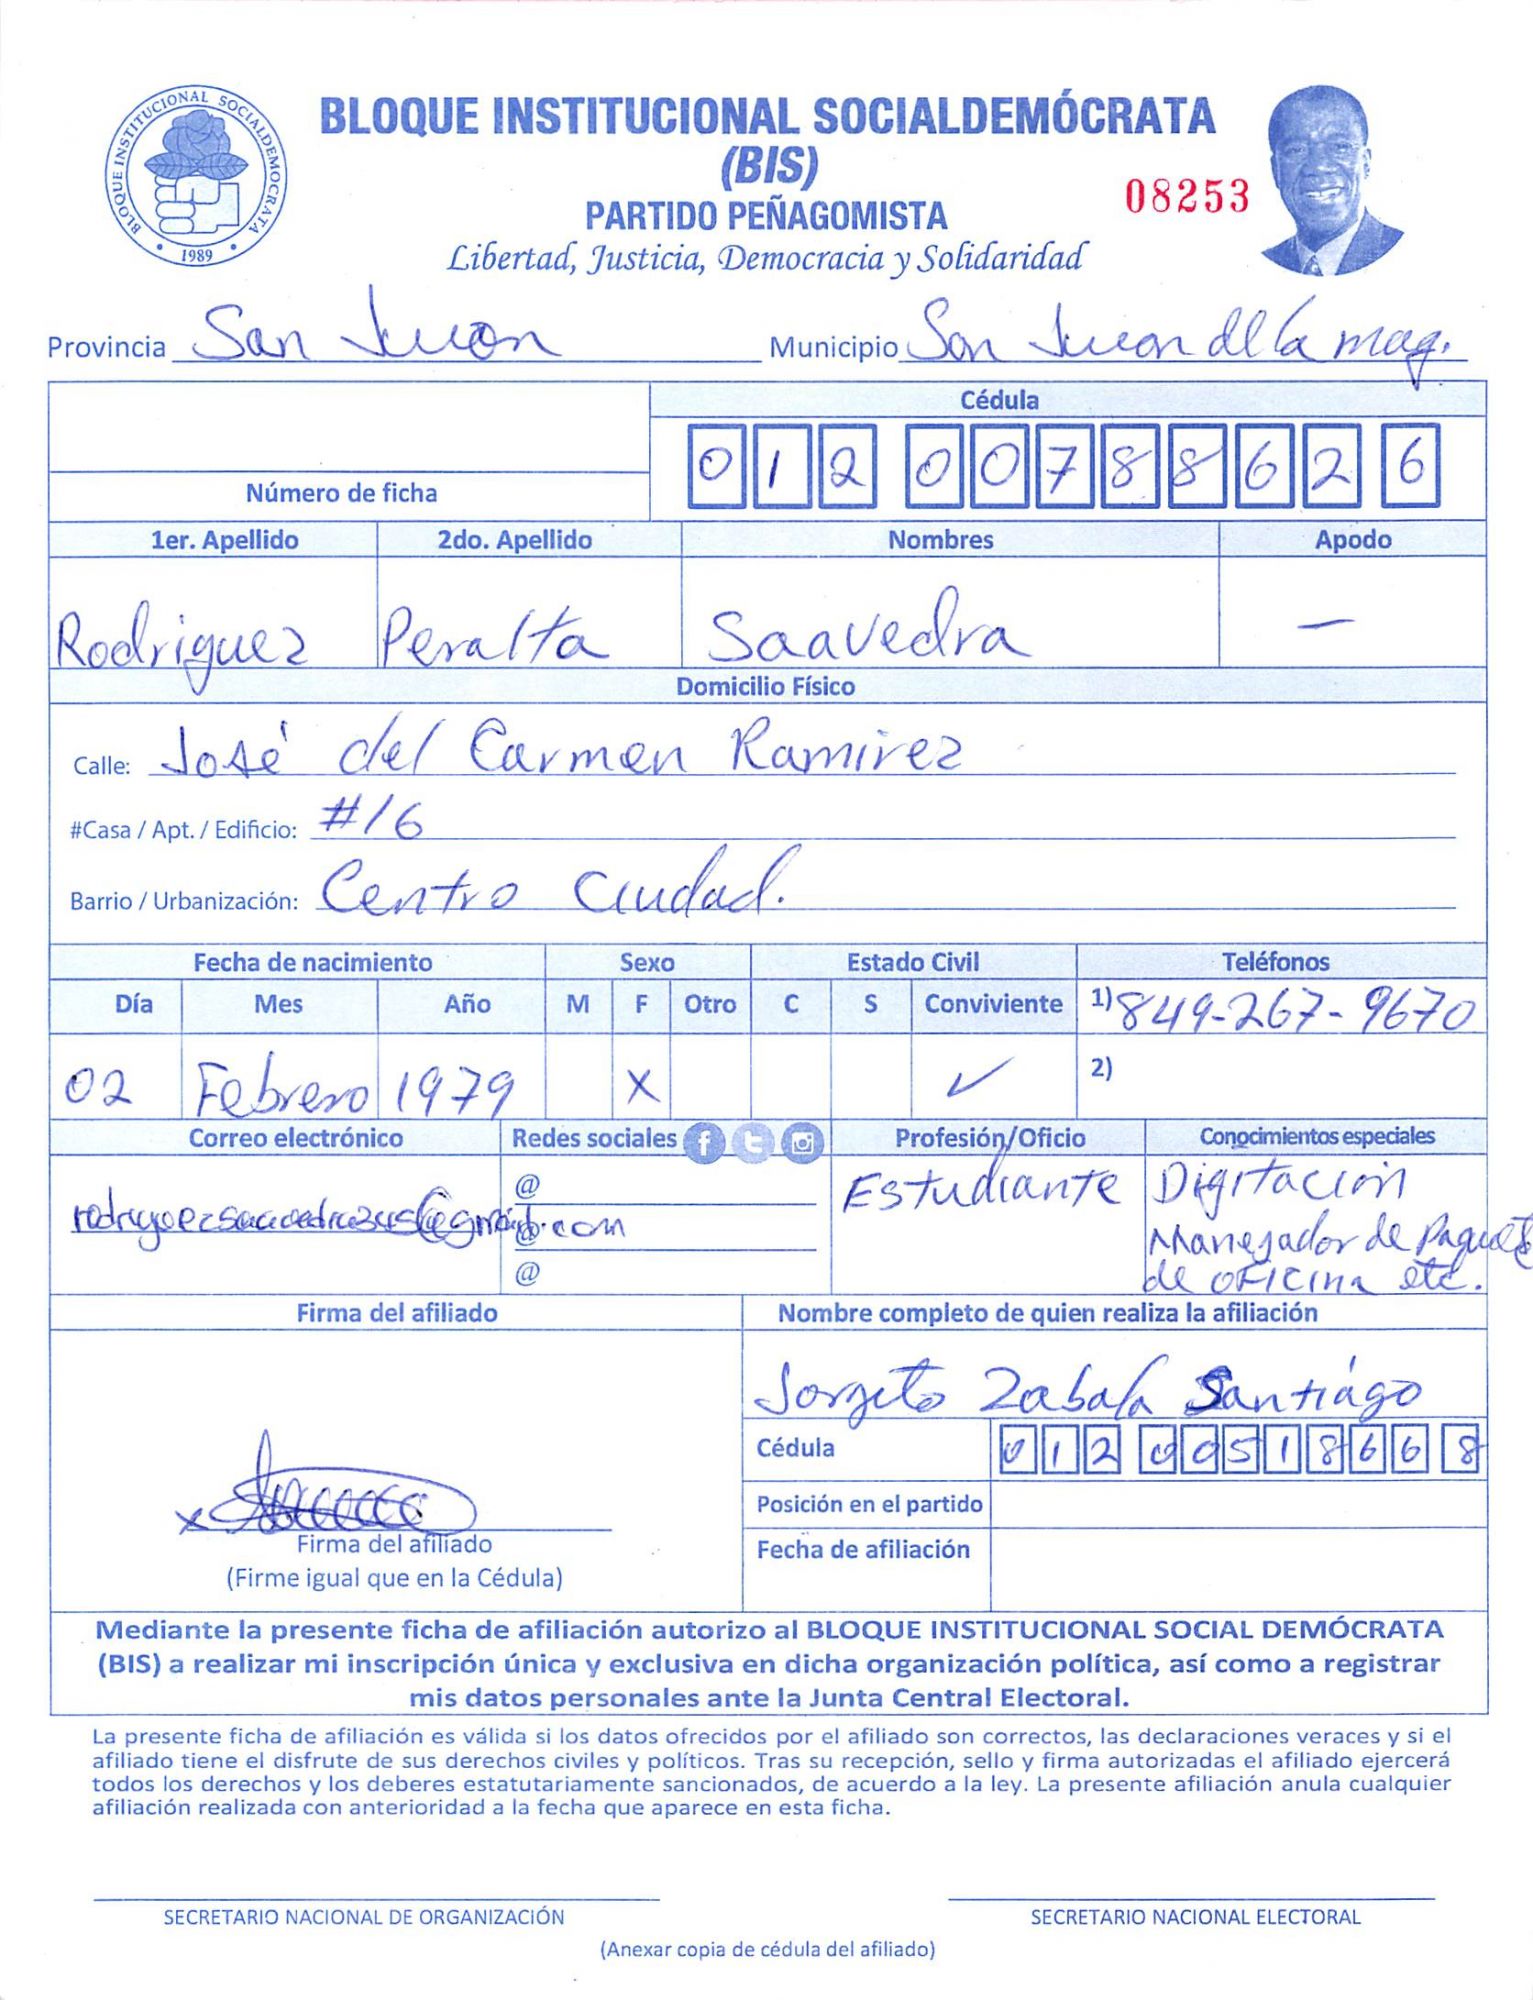 BLOQUE INSTITUCIONAL SOCIALDEMOCRATA
1989
BLOQUE INSTITUCIONAL SOCIALDEMÓCRATA
(BIS)
PARTIDO PEÑAGOMISTA
08253
Libertad, Justicia, Democracia y Solidaridad
Provincia San Juan Municipio San Juan de la mag.
Cédula
0 1 2 0 0 7 8 8 6 2 6
Número de ficha
1er. Apellido 2do. Apellido Nombres Apodo
Rodriguez Peralta Saavedra —
Domicilio Físico
Calle: José del Carmen Ramirez
#Casa / Apt. / Edificio: #16
Barrio / Urbanización: Centro Ciudad.
Fecha de nacimiento Sexo Estado Civil Teléfonos
Día Mes Año M F Otro C S Conviviente 1) 849-267-9670
02 Febrero 1979 X ✓ 2)
Correo electrónico Redes sociales Profesión/Oficio Conocimientos especiales
@ Estudiante Digitación
@ Manejador de Paquetes
@ de oficina etc.
Firma del afiliado Nombre completo de quien realiza la afiliación
Jorgito Zabala Santiago
Cédula 0 1 2 0 0 5 1 8 6 6 8
x
Posición en el partido
Firma del afiliado
Fecha de afiliación
(Firme igual que en la Cédula)
Mediante la presente ficha de afiliación autorizo al BLOQUE INSTITUCIONAL SOCIAL DEMÓCRATA
(BIS) a realizar mi inscripción única y exclusiva en dicha organización política, así como a registrar
mis datos personales ante la Junta Central Electoral.
La presente ficha de afiliación es válida si los datos ofrecidos por el afiliado son correctos, las declaraciones veraces y si el
afiliado tiene el disfrute de sus derechos civiles y políticos. Tras su recepción, sello y firma autorizadas el afiliado ejercerá
todos los derechos y los deberes estatutariamente sancionados, de acuerdo a la ley. La presente afiliación anula cualquier
afiliación realizada con anterioridad a la fecha que aparece en esta ficha.
SECRETARIO NACIONAL DE ORGANIZACIÓN SECRETARIO NACIONAL ELECTORAL
(Anexar copia de cédula del afiliado)